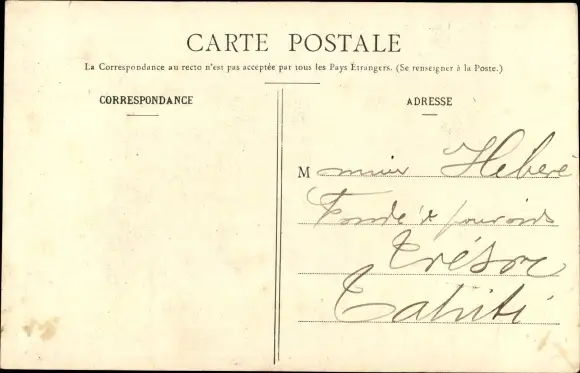 CARTE POSTALE
La Correspondance au recto n'est pas acceptée par tous les Pays Étrangers. (Se renseigner à la Poste.)
CORRESPONDANCE
ADRESSE
Monsieur Heberé
Fondé de pouvoirs
Trésor
Tahiti